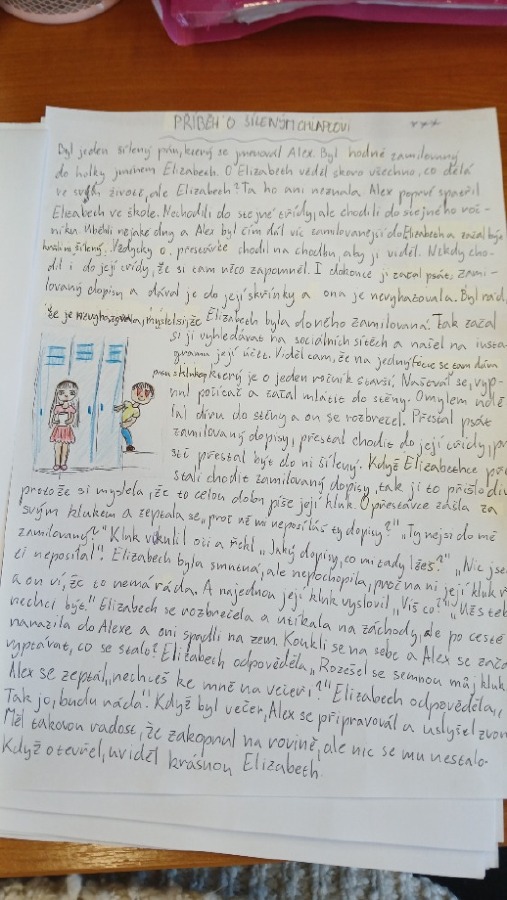 PŘÍBĚH O ŠÍLENÝM CHLAPLOVI
Byl jeden šílený pán, který se jmenoval Alex. Byl hodně zamilovaný
do holky jménem Elizabeth. O Elizabeth věděl skoro všechno, co dělá
ve svým životě, ale Elizabeth? Ta ho ani neznala. Alex poprvé spatřil
Elizabeth ve škole. Nechodili do stejné třídy, ale chodili do stejného roč-
níku. Uběhli nějaké dny a Alex byl čím dál víc zamilovanější do Elizabeth a začal být
šílený. Vždycky o přestávce chodil na chodbu, aby ji viděl. Někdy cho-
dil i do její třídy, že si tam něco zapomněl. I dokonce jí začal psát zami-
lovaný dopisy a dával je do její skříňky a ona je nevyhazovala. Byl rád,
že je nevyhazovala, myslel si, že Elizabeth byla do něho zamilovaná. Tak začal
si ji vyhledávat na sociálních sítích a našel na insta-
gramu její účet. Viděl tam, že na jedný fotce se tam dává
pusu s klukem, který je o jeden ročník starší. Naštval se, vyp-
nul počítač a začal mlátit do stěny. Omylem udě-
lal díru do stěny a on se rozbrečel. Přestal psát
zamilovaný dopisy, přestal chodit do její třídy,
stě přestal být do ní šílený. Když Elizabethce pře-
stali chodit zamilovaný dopisy, tak jí to přišlo
protože si myslela, že to celou dobu píše její kluk. O přestávce zašla za
svým klukem a zeptala se „proč už mi neposíláš ty dopisy?" „Ty nejsi do mě
zamilovaný?" Kluk vykulil oči a řekl „Jaký dopisy, co mi tady lžeš?" „Nic jsem
ti neposílal". Elizabeth byla smutná, ale nepochopila, proč na ni její kluk
a on ví, že to nemá ráda. A najednou její kluk vyslovil „Víš co?" „Už s
nechci být." Elizabeth se rozbrečela a utíkala na záchody, ale po cestě
narazila do Alexe a oni spadli na zem. Koukli se na sebe a Alex se začal
vyptávat, co se stalo? Elizabeth odpověděla „Rozešel se semnou můj kluk
Alex se zeptal „nechceš ke mně na večeři?" Elizabeth odpověděla „
Tak jo, budu ráda". Když byl večer, Alex se připravoval a uslyšel zvon
Měl takovou radost, že zakopnul na rovině, ale nic se mu nestalo.
Když otevřel, uviděl krásnou Elizabeth.